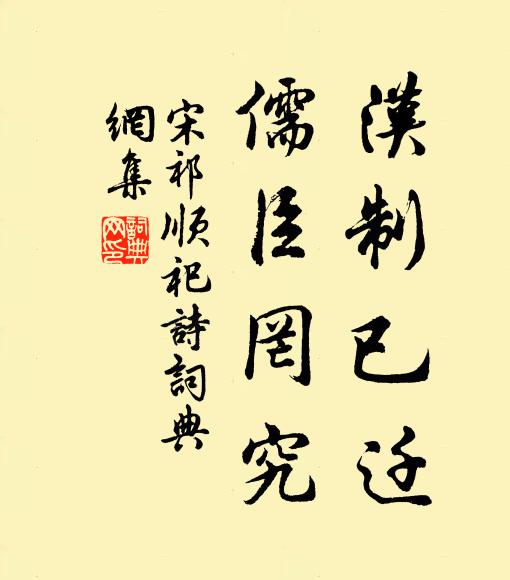 漢制已迁
儒臣罔究
宋祁順祀詩詞典
網集
詞典
网印